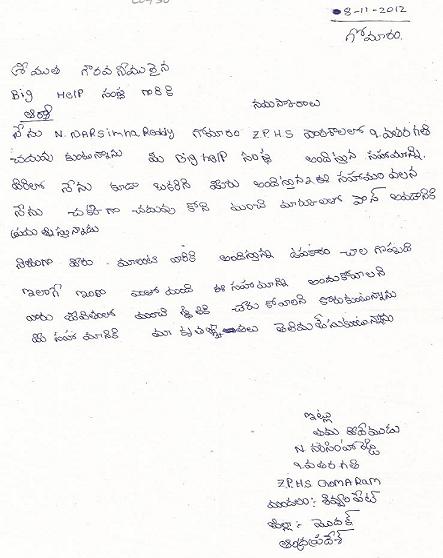 8-11-2012
గోమారం.
శ్రీయుత గౌరవనీయులైన
Big Help సంస్థ గారికి
నమస్కారాలు
నేను N. NARSimha Reddy గోమారం Z.P.H.S పాఠశాలలో 9.వతరగతి
చదువు కుంటున్నాను మీ Big help సంస్థ అందిస్తున్న సహాయాన్ని.
నేను కూడా ఒకరిని మీరు అందిస్తున్న ఈ సహాయం వలన
నేను చక్కగా చదువు కోని మంచి మార్కులలో పాస్ అవడానికి
ప్రయత్నిస్తున్నాను
నిజంగా మీరు. మాలాంటి వారికి అందిస్తున్న ఉపకారం చాల గొప్పది
ఇలాగే ఇంకా ఎంతో మంది ఈ సహాయాన్ని అందుకోవాలని
వారు జీవితంలో మంచి స్థితికి చేరు కోవాలని కోరుకుంటున్నాను
మీ సహాయానికి మా కృతజ్ఞతలు తెలియ చేసుకుంటున్నాను
ఇట్లు
తమ విధేయుడు
N నరసింహారెడ్డి
9.వతరగతి
Z.P.H.S GOMARam
మండలం:- శివ్వంపేట్
జిల్లా:- మెదక్
ఆంధ్రప్రదేశ్